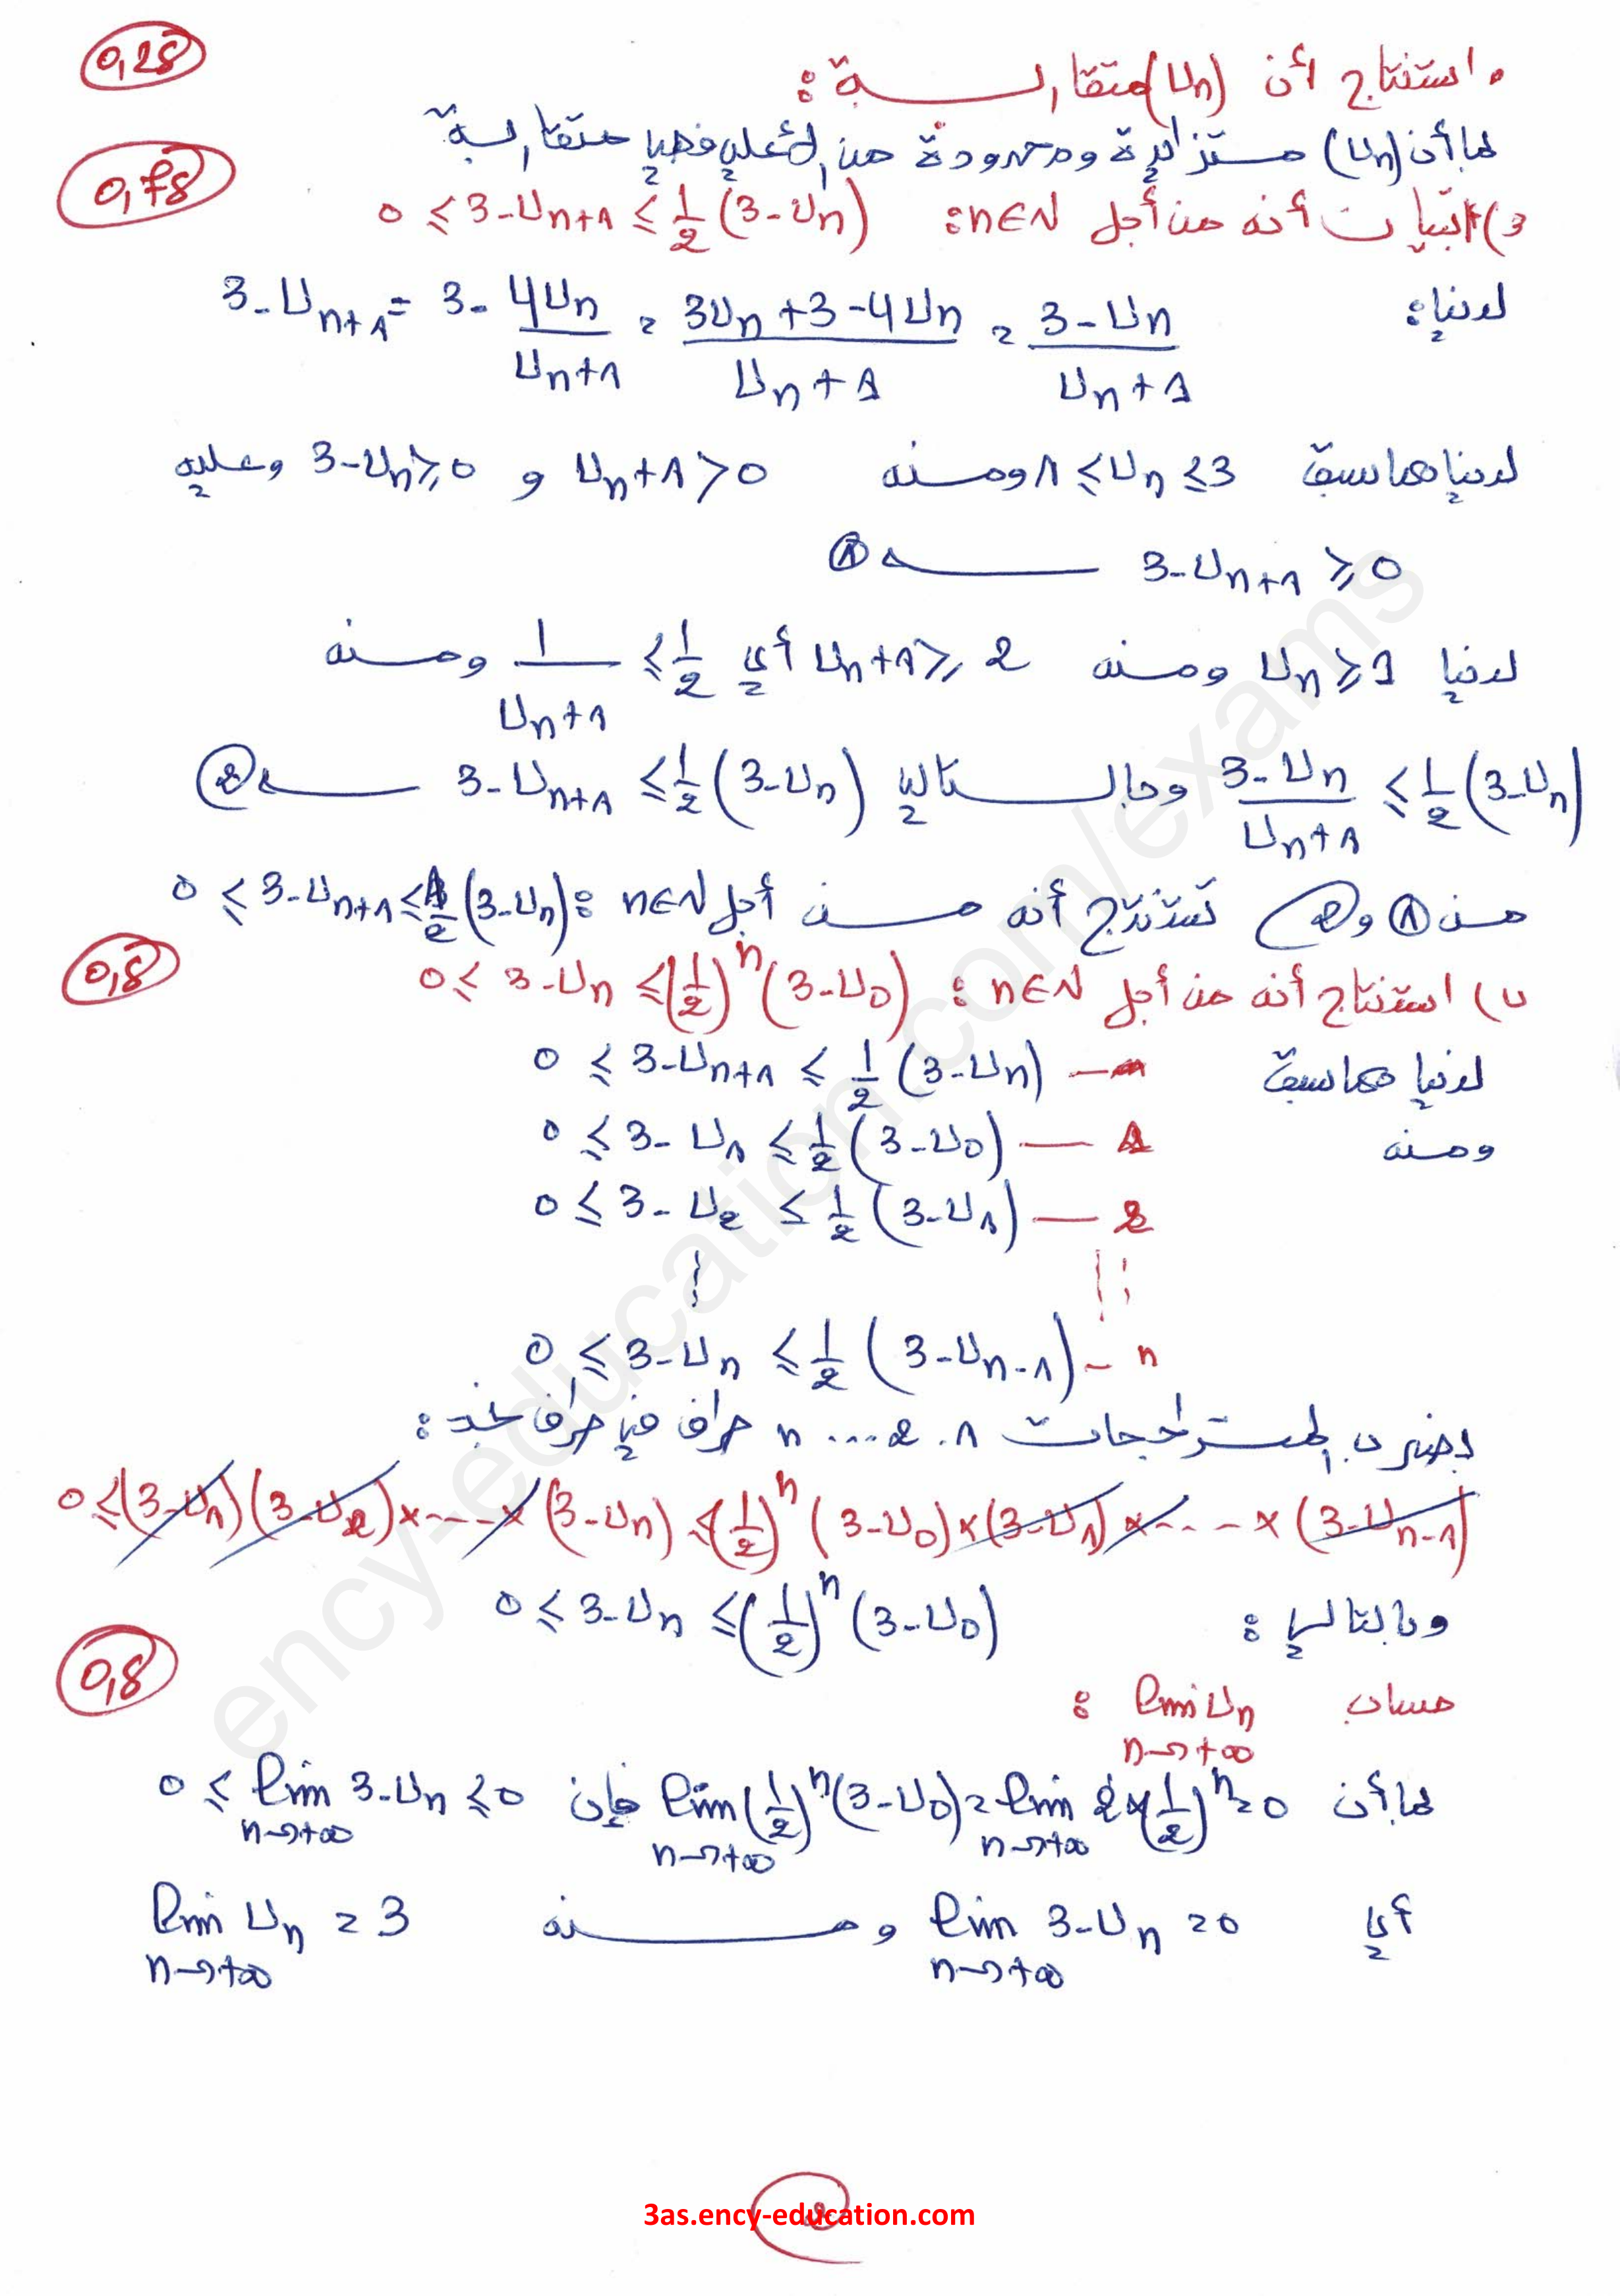 0,25
• استنتاج أن (Un) متقاربة :
بما أن (Un) متزايدة ومحدودة من الأعلى فهي متقاربة
0,75
3) أ) تبيان أنه من أجل n∈ℕ: 0 ≤ 3-Un+1 ≤ 1/2 (3-Un)
لدينا: 3-Un+1 = 3 - 4Un/(Un+1) = (3Un+3-4Un)/(Un+1) = (3-Un)/(Un+1)
لدينا مما سبق 1 ≤ Un ≤ 3 ومنه Un+1 > 0 و 3-Un ≥ 0 وعليه
3-Un+1 ≥ 0 — ①
لدينا Un ≥ 1 ومنه Un+1 ≥ 2 أي 1/(Un+1) ≤ 1/2 ومنه
(3-Un)/(Un+1) ≤ 1/2 (3-Un) وبالتالي 3-Un+1 ≤ 1/2 (3-Un) — ②
من ① و ② نستنتج أنه من أجل n∈ℕ : 0 ≤ 3-Un+1 ≤ 1/2 (3-Un)
0,5
ب) استنتاج أنه من أجل n∈ℕ : 0 ≤ 3-Un ≤ (1/2)^n (3-U0)
لدينا مما سبق 0 ≤ 3-Un+1 ≤ 1/2 (3-Un) —
ومنه 0 ≤ 3-U1 ≤ 1/2 (3-U0) — 1
0 ≤ 3-U2 ≤ 1/2 (3-U1) — 2
⋮
0 ≤ 3-Un ≤ 1/2 (3-Un-1) — n
بضرب المتراجحات 1. 2 .... n طرف في طرف نجد :
0 ≤ (3-U1)(3-U2)×----×(3-Un) ≤ (1/2)^n (3-U0)×(3-U1)×---×(3-Un-1)
وبالتالي : 0 ≤ 3-Un ≤ (1/2)^n (3-U0)
0,5
حساب lim Un :
n→+∞
بما أن lim (1/2)^n (3-U0) = lim 2×(1/2)^n = 0 فإن 0 ≤ lim 3-Un ≤ 0
n→+∞ n→+∞ n→+∞
أي lim 3-Un = 0 ومنه lim Un = 3
n→+∞ n→+∞
2
3as.ency-education.com
ency-education.com/exams